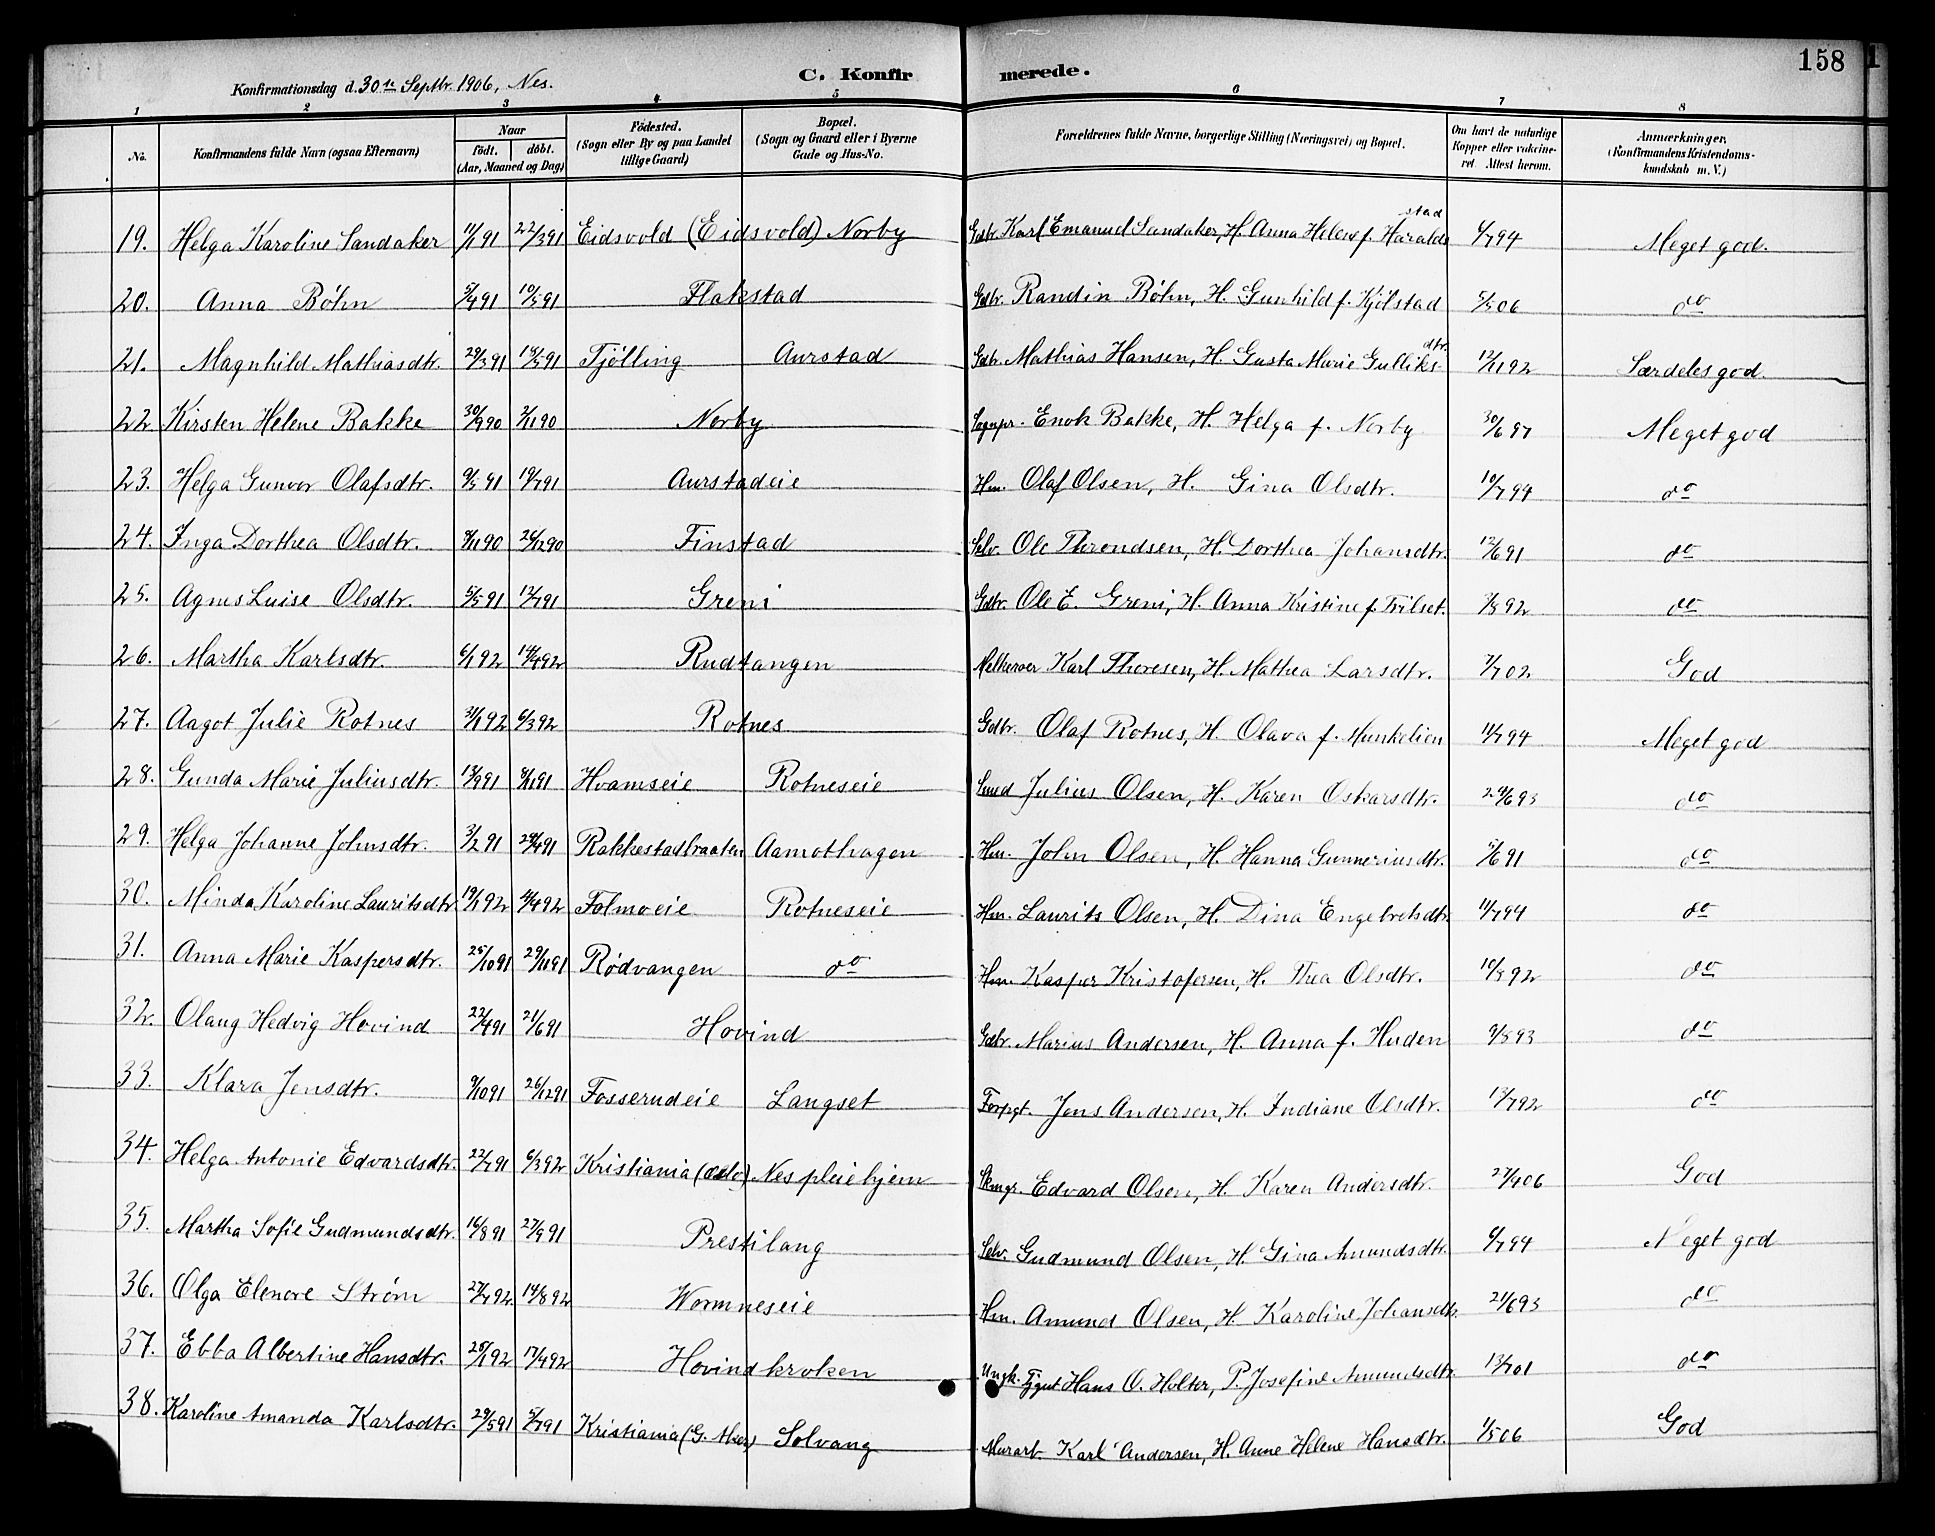 158
C. Konfirmerede.
Konfirmationsdag d. 30te Septbr. 1906, Nes.
1 2 3 4 5 6 7 8
No. Konfirmandens fulde Navn (ogsaa Efternavn) Naar født. døbt. (Aar, Maaned og Dag) Fødested. (Sogn eller By og paa Landet tillige Gaard) Bopæl. (Sogn og Gaard eller i Byerne Gade og Hus-No. Forældrenes fulde Navne, borgerlige Stilling (Næringsvei) og Bopæl. Om havt de naturlige Kopper eller vaccineret. Attest herom. Anmærkninger, (Konfirmandens Kristendomskundskab m. V.)
19. Helga Karoline Sandaker 11/1 91 22/3 91 Eidsvold (Eidsvold) Norby Gdbr. Karl Emanuel Sandaker, H. Anna Helene f. Haraldstad 4/7 94 Meget god.
20. Anna Bøhn 5/4 91 10/5 91 Flakstad Gdbr. Randin Bøhn, H. Gunhild f. Kjölstad 5/5 06 do
21. Magnhild Mathiasdtr. 29/3 91 18/5 91 Tjølling Aurstad Gdbr. Mathias Hansen, H. Gusta Marie Gulliksdtr. 12/11 92 Særdeles god.
22 Kirsten Helene Bakke 30/9 90 2/11 90 Norby Sognpr. Enok Bakke, H. Helga f. Norby 30/6 97 Meget god
23. Helga Gunvor Olafsdtr. 9/5 91 19/7 91 Aurstadeie Hm. Olaf Olsen, H. Gina Olsdtr. 10/7 94 do
24. Inga Dorthea Olsdtr. 8/11 90 26/12 90 Finstad Selv. Ole Throndsen, H. Dorthea Johansdtr. 12/6 91 do
25. Agnes Luise Olsdtr. 5/5 91 12/7 91 Greni Gdbr. Ole E. Greni, H. Anna Kristine f. Trilset. 7/8 92 do
26. Martha Karlsdtr. 6/1 92 14/4 92 Rudtangen Karl Thoresen, H. Mathea Larsdtr. 7/7 02 God
27. Aagot Julie Rotnes 31/1 92 6/3 92 Rotnes Gdbr. Olaf Rotnes, H. Olava f. Munkelien 11/7 94 Meget god
28. Gunda Marie Juliusdtr. 13/9 91 8/11 91 Hvamseie Rotneseie Smed Julius Olsen, H. Karen Oskarsdtr. 24/6 93 do
29. Helga Johanne Johnsdtr. 3/2 91 29/4 91 Rakkestadbraaten Aamothagen Hm. John Olsen, H. Hanna Gunneriusdtr. 5/6 91 do
30. Minda Karoline Lauritsdtr. 19/1 92 4/4 92 Folmoeie Rotneseie Hm. Laurits Olsen, H. Dina Engebretsdtr. 11/7 94 do
31. Anna Marie Kaspersdtr. 25/10 91 29/11 91 Rødvangen do Hm. Kasper Kristofersen, H. Thea Olsdtr. 10/8 92 do
32. Olaug Hedvig Hovind 22/4 91 21/6 91 Hovind Gdbr. Marius Andersen, H. Anna f. Huden 9/5 93 do
33. Klara Jensdtr. 9/10 91 26/12 91 Fosserudeie Langset Forpgt. Jens Andersen, H. Indiane Olsdtr. 13/7 92 do
34. Helga Antonie Edvardsdtr. 22/7 91 6/3 92 Kristiania (Oslo) Nes pleiehjem Skmgr. Edvard Olsen, H. Karen Andersdtr. 27/4 06 God
35. Martha Sofie Gudmundsdtr. 16/8 91 27/9 91 Prestilang Selv. Gudmund Olsen, H. Gina Amundsdtr. 6/7 94 Meget god
36. Olga Elenore Strøm 27/7 92 14/8 92 Wormneseie Hm. Amund Olsen, H. Karoline Johansdtr. 21/6 93 do
37. Ebba Albertine Hansdtr. 25/1 92 17/4 92 Hovindkroken Ungk. Tjgut Hans O. Holter, P. Josefine Amundsdtr. 13/7 01 do
38. Karoline Amanda Karlsdtr. 29/5 91 5/7 91 Kristiania (G. Aker) Solvang Murarb. Karl Andersen, H. Anne Helene Hansdtr. 1/5 06 God